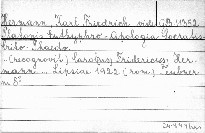 Hermann, Karl Friedrich vidi GB 4352
Dialogis Euthyphro. Apologia Socratis
Crito. Phaedo.
(Recognovit) Carolus Fridericus Her-
mann. Lipsiae 1922 (rom.) Teubner
m 8°.